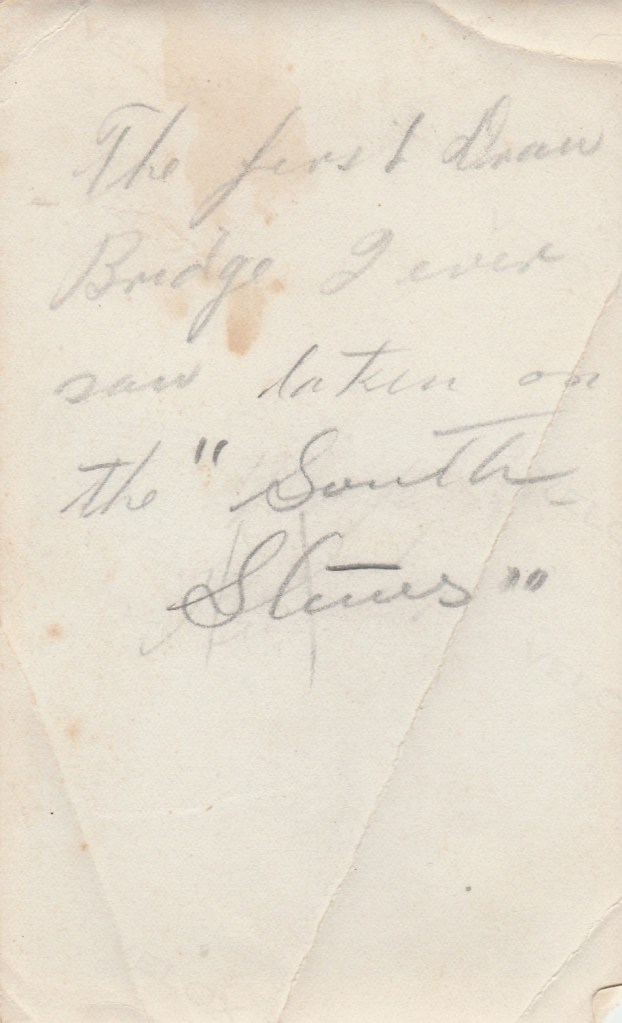 The first Draw
Bridge I ever
saw taken on
the "South
""